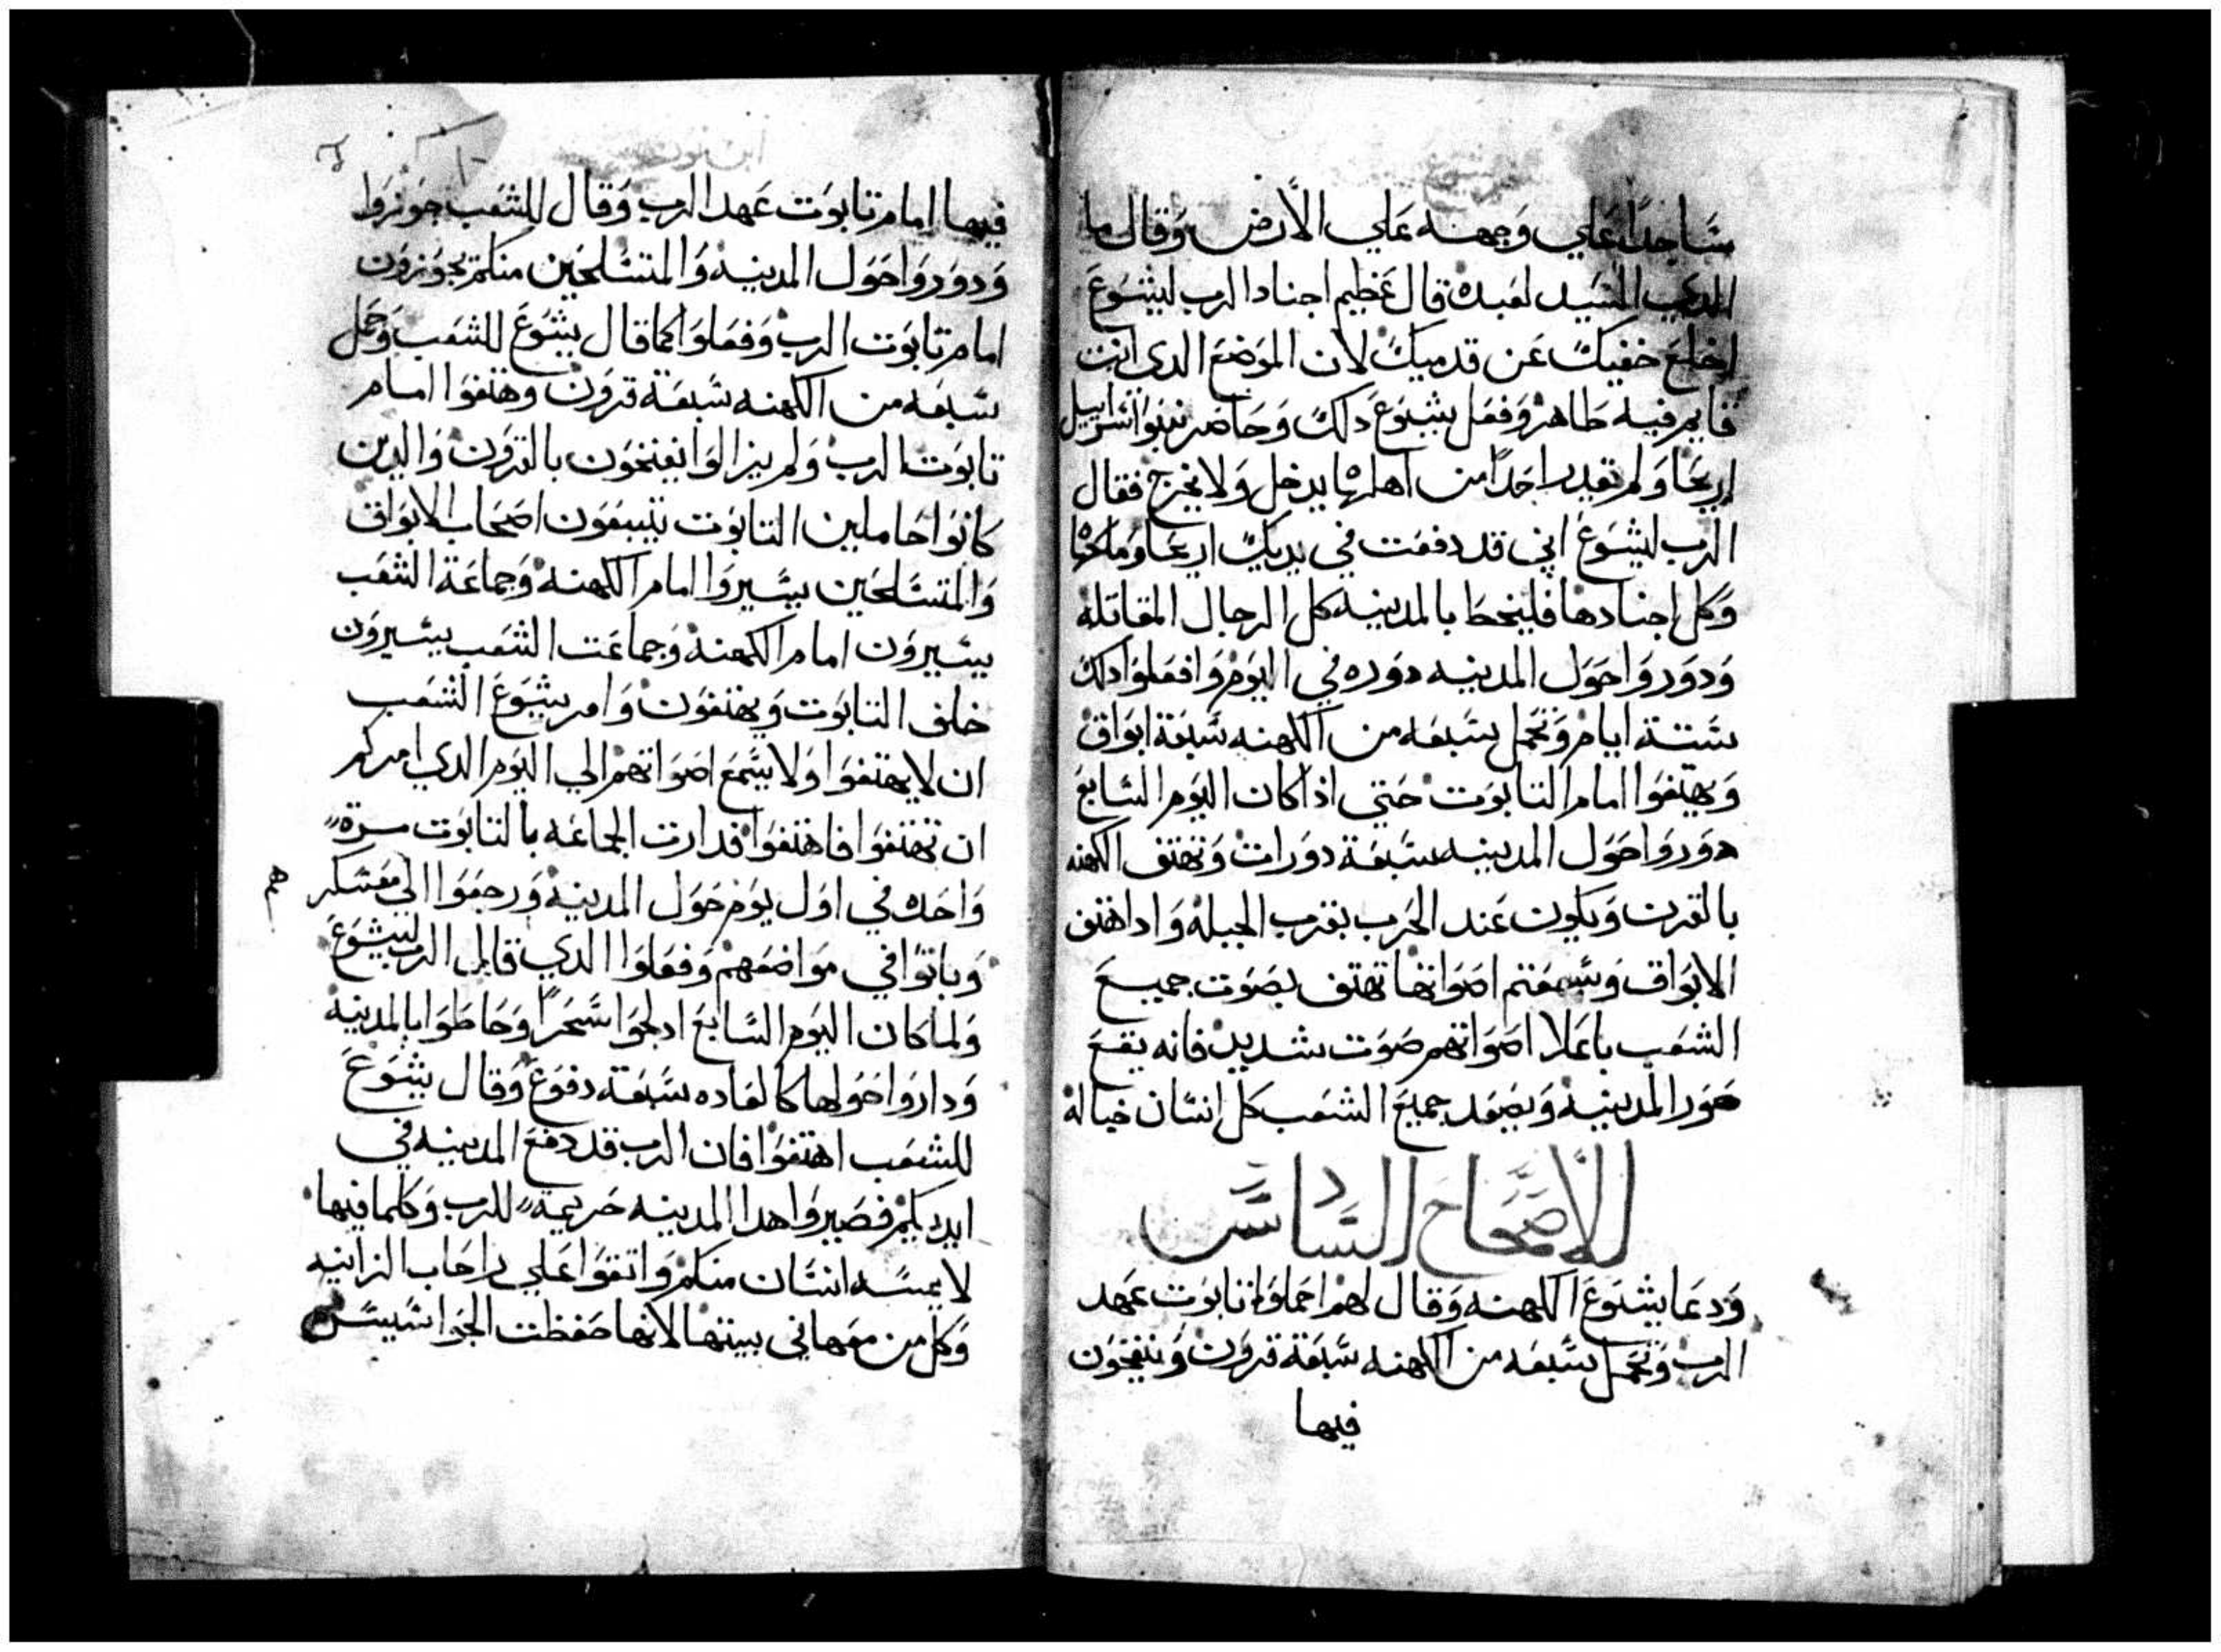 ساجدًا علي وجهه علي الأرض وقال ما
الدي السيد لعبده قال عظيم اجناد الرب ليشوع
اخلع خفيك عن قدميك لان الموضع الدي انت
قايم فيه طاهر وفعل يشوع دلك وحاصر بنوا اسراييل
اريحا ولم يقدر احدًا من اهلها يدخل ولا يخرج فقال
الرب ليشوع اني قد دفعت في يديك اريحا وملكها
وكل اجنادها فليحط بالمدينه كل الرجال المقاتله
ودوروا حول المدينه دوره في اليوم وافعلوا دلك
ستة ايام وتحمل سبعه من الكهنه سبعة ابواق
ويهتفوا امام التابوت حتي اذا كان اليوم السابع
دوروا حول المدينه سبعة دورات وتهتف الكهنه
بالقرن ويكون عند الحرب بقرب الجبله وادا هتف
الابواق وسمعتم اصواتها تهتف بصوت جميع
الشعب باعلا اصواتهم صوت شديد فانه يقع
صور المدينه ويصعد جميع الشعب كل انسان خياله
الأصحاح السادس
ودعا يشوع الكهنه وقال لهم احملوا تابوت عهد
الرب وتحمل سبعه من الكهنه سبعة قرون وينفخون
فيها
ابن نون
فيها امام تابوت عهد الرب وقال للشعب جوزوا
ودوروا حول المدينه والمتسلحين منكم يجوزون
امام تابوت الرب وفعلوا كما قال يشوع للشعب وحمل
سبعه من الكهنه سبعة قرون وهتفوا امام
تابوت الرب ولم يزالوا ينفخون بالقرون والدين
كانوا حاملين التابوت يتبعون اصحاب الابواق
والمتسلحين يسيروا امام الكهنه وجماعة الشعب
يسيرون امام الكهنه وجماعت الشعب يسيرون
خلف التابوت ويهتفون وامر يشوع الشعب
ان لا يهتفوا ولا يسمع اصواتهم الي اليوم الدي امركم
ان تهتفوا فاهتفوا فدارت الجماعه بالتابوت مرة
واحده في اول يوم حول المدينه ورجعوا الي معسكر
هم
وباتوا في مواضعهم وفعلوا الدي قال الرب ليشوع
ولما كان اليوم السابع ادلجوا سحرًا وحاطوا بالمدينه
وداروا حولها كالعاده سبعة دفوع وقال يشوع
للشعب اهتفوا فان الرب قد دفع المدينه في
ايديكم فصيروا هدا المدينه حريمة للرب وكلما فيها
لا يمسه انسان منكم واتقوا علي راحاب الزانيه
وكل من معها في بيتها لانها حفظت الجواسيس